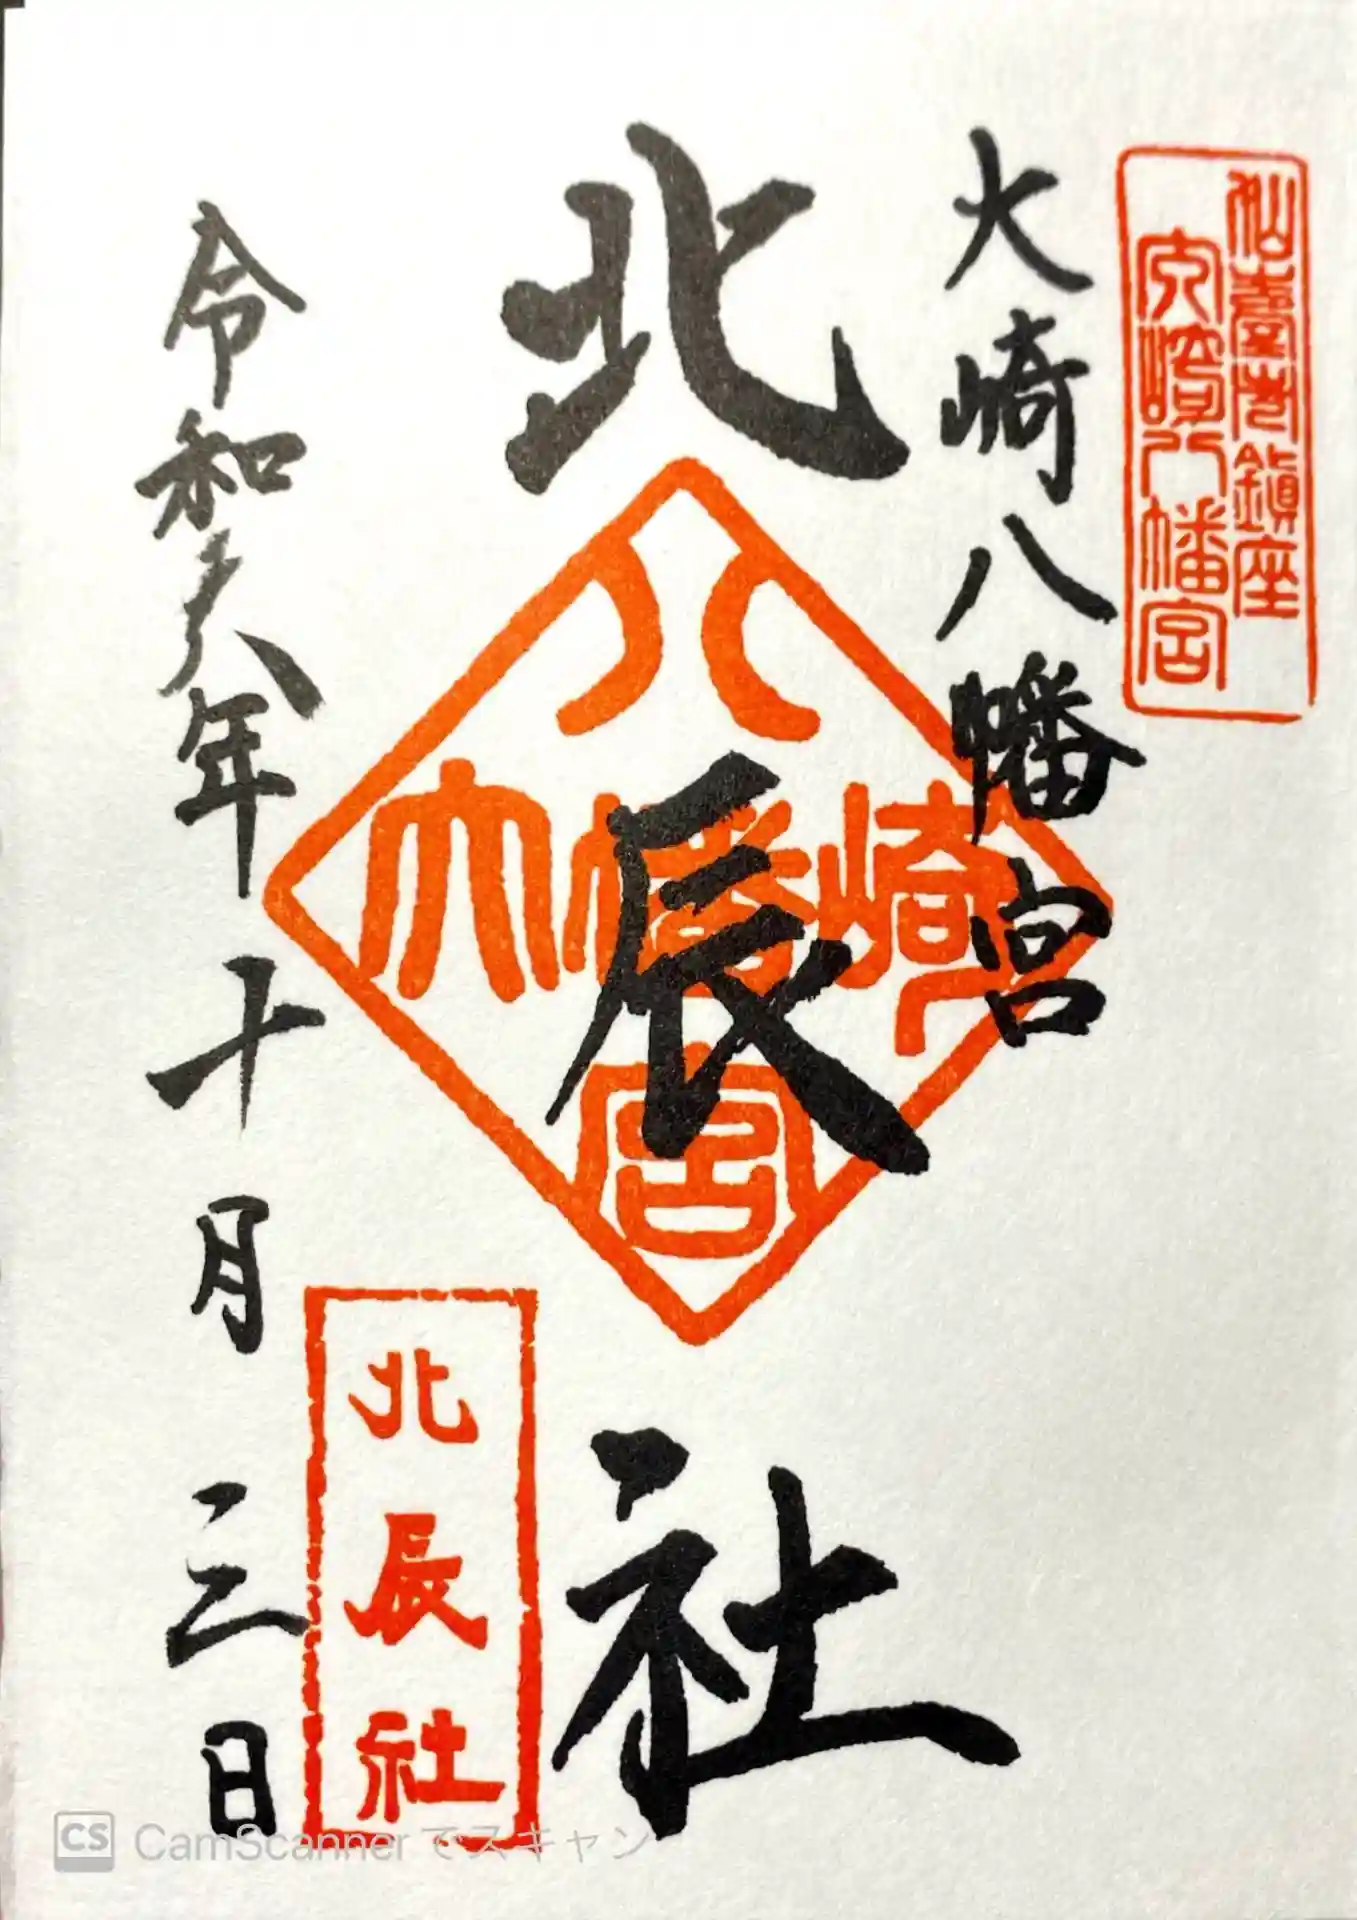 仙臺市鎮座
大崎八幡宮
大崎八幡宮
北辰社
八
大幡崎
宮
北辰社
令和六年十月三日
CS CamScanner でスキャン